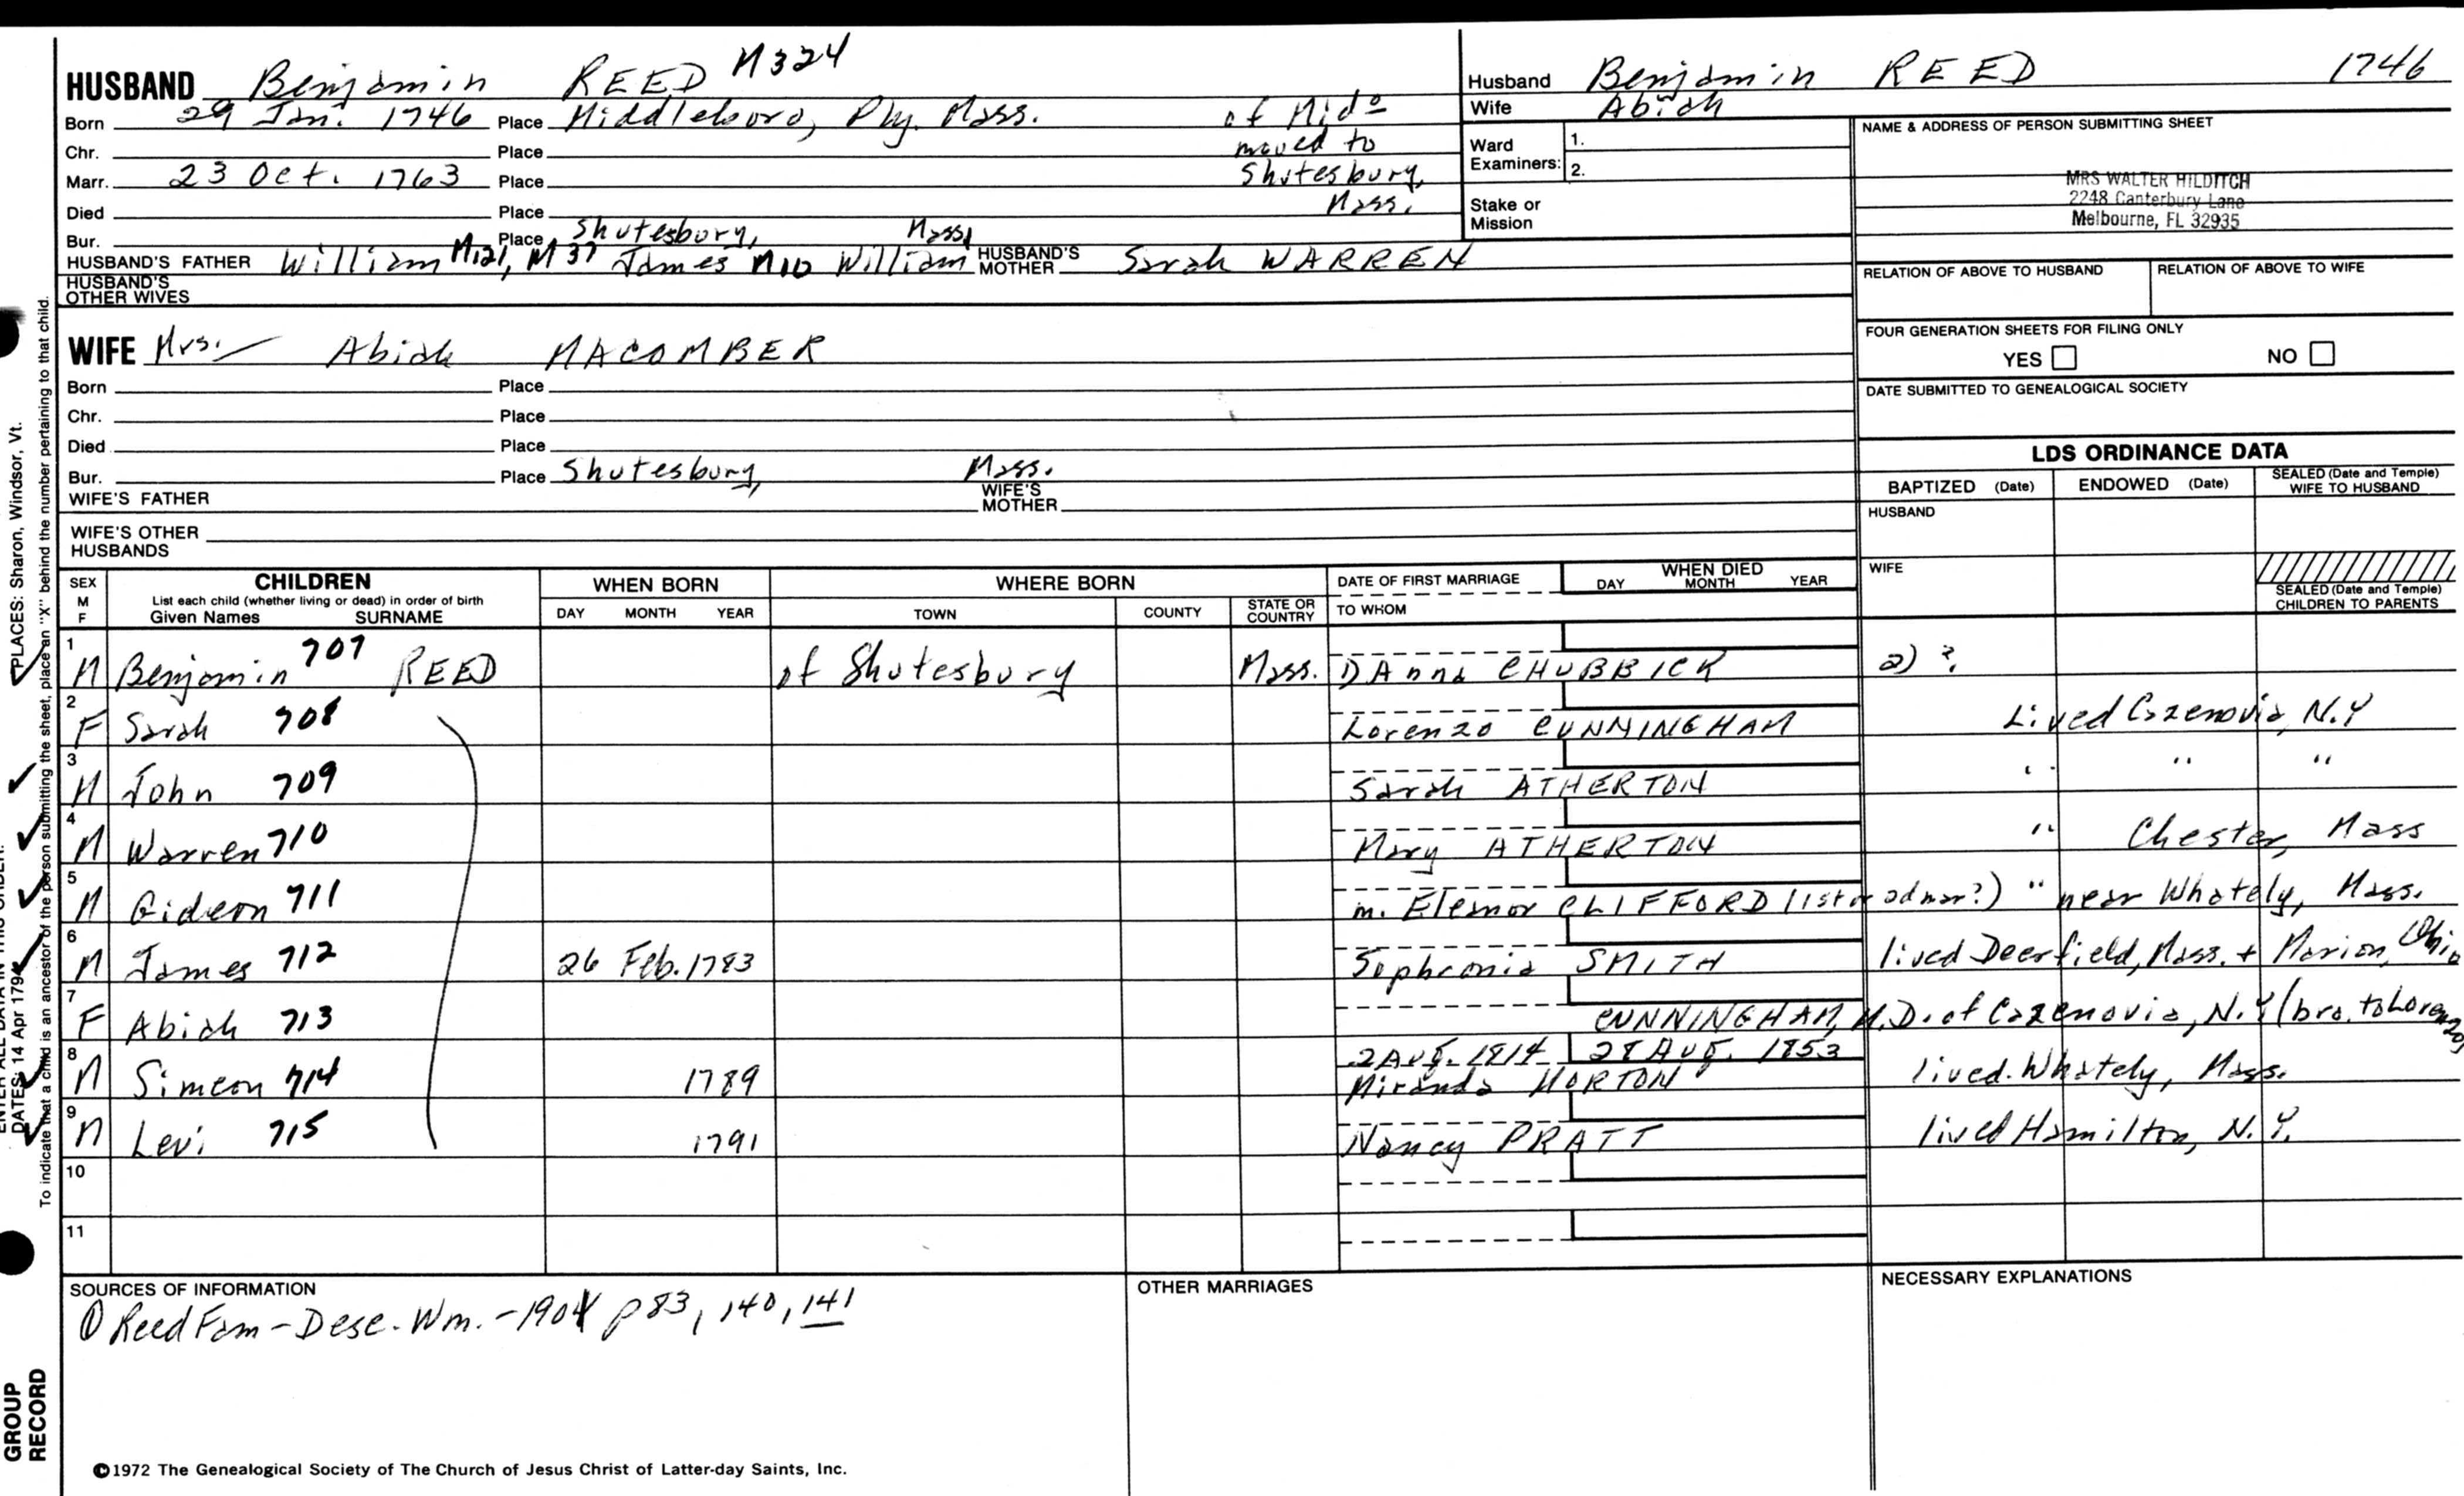 HUSBAND Benjamin REED M324
Born 29 Jan. 1746 Place Middleboro, Ply. Mass. of Mido
Chr. Place moved to
Marr. 23 Oct. 1763 Place Shutesbury,
Died Place Mass.
Bur. Place Shutesbury, Mass,
HUSBAND'S FATHER William M121, M37 James M10 William HUSBAND'S MOTHER Sarah WARREN
HUSBAND'S
OTHER WIVES
Husband Benjamin REED 1746
Wife Abiah
Ward
Examiners:
1.
2.
Stake or
Mission
NAME & ADDRESS OF PERSON SUBMITTING SHEET
MRS WALTER HILDITCH
2248 Canterbury Lane
Melbourne, FL 32935
RELATION OF ABOVE TO HUSBAND RELATION OF ABOVE TO WIFE
FOUR GENERATION SHEETS FOR FILING ONLY
YES NO
DATE SUBMITTED TO GENEALOGICAL SOCIETY
WIFE Mrs. Abiah MACOMBER
Born Place
Chr. Place
Died Place
Bur. Place Shutesbury, Mass.
WIFE'S FATHER WIFE'S MOTHER
WIFE'S OTHER
HUSBANDS
LDS ORDINANCE DATA
BAPTIZED (Date) ENDOWED (Date) SEALED (Date and Temple) WIFE TO HUSBAND
HUSBAND
WIFE
SEALED (Date and Temple)
CHILDREN TO PARENTS
SEX
M
F
CHILDREN
List each child (whether living or dead) in order of birth
Given Names SURNAME
WHEN BORN
DAY MONTH YEAR
WHERE BORN
TOWN COUNTY STATE OR COUNTRY
DATE OF FIRST MARRIAGE
TO WHOM
WHEN DIED
DAY MONTH YEAR
1 M Benjamin 707 REED of Shutesbury Mass. Anna CHUBBICK 2) ?
2 F Sarah 708 Lorenzo CUNNINGHAM Lived Cazenovia, N.Y
3 M John 709 Sarah ATHERTON " " "
4 M Warren 710 Mary ATHERTON " Chester, Mass
5 M Gideon 711 m. Eleanor CLIFFORD (1st or 2d mar?) " near Whately, Mass.
6 M James 712 26 Feb. 1783 Sophronia SMITH lived Deerfield, Mass. + Marion, Ohio
7 F Abiah 713 CUNNINGHAM, M.D. of Cazenovia, N.Y (bro. to Lorenzo)
8 M Simeon 714 1789 2 Aug. 1814 28 Aug. 1853
Miranda MORTON lived Whately, Mass.
9 M Levi 715 1791 Nancy PRATT lived Hamilton, N.Y.
10
11
SOURCES OF INFORMATION
① Reed Fam - Desc. Wm. - 1904 p 83, 140, 141
OTHER MARRIAGES
NECESSARY EXPLANATIONS
©1972 The Genealogical Society of The Church of Jesus Christ of Latter-day Saints, Inc.
PLACES: Sharon, Windsor, Vt.
DATES: 14 Apr 1794
To indicate that a child is an ancestor of the person submitting the sheet, place an "X" behind the number pertaining to that child.
GROUP
RECORD